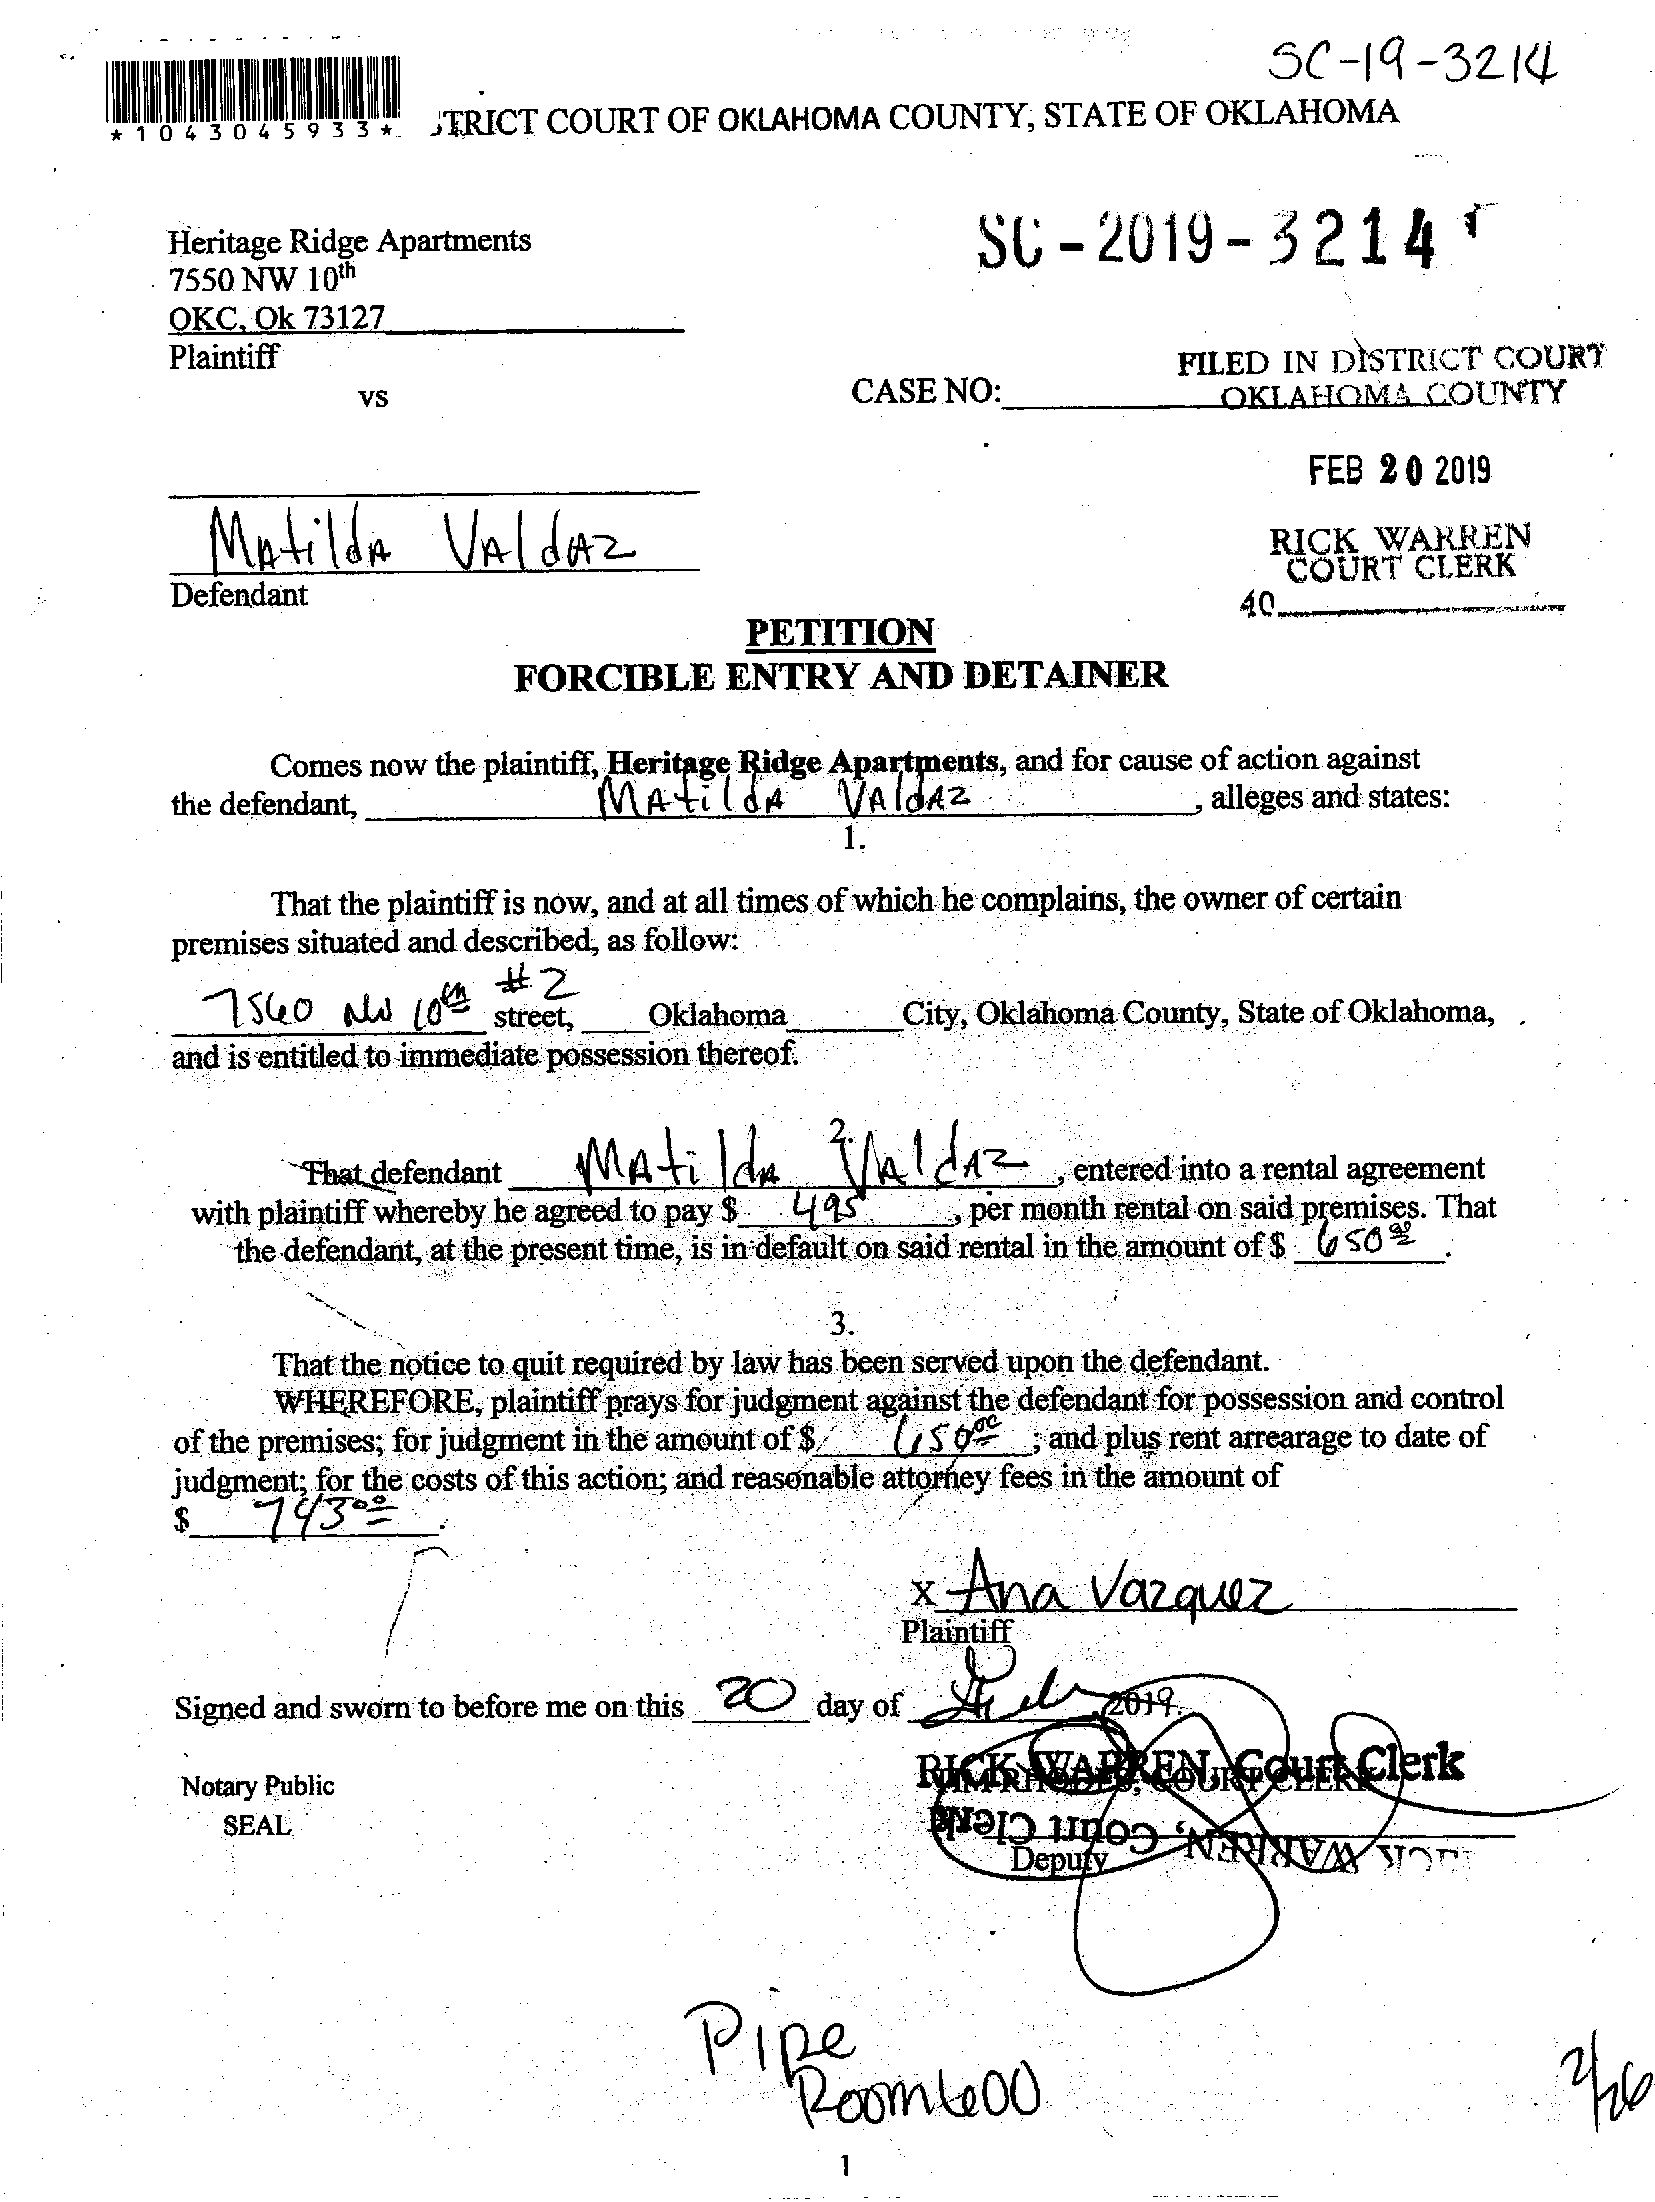 SC-19-3214
*1043045933*
STRICT COURT OF OKLAHOMA COUNTY, STATE OF OKLAHOMA
SC-2019-3214
Heritage Ridge Apartments
7550 NW 10th
OKC, Ok 73127
Plaintiff
vs
CASE NO:
FILED IN DISTRICT COURT
OKLAHOMA COUNTY
FEB 20 2019
RICK WARREN
COURT CLERK
40
Matilda Valdaz
Defendant
PETITION
FORCIBLE ENTRY AND DETAINER
Comes now the plaintiff, Heritage Ridge Apartments, and for cause of action against
the defendant, Matilda Valdaz, alleges and states:
1.
That the plaintiff is now, and at all times of which he complains, the owner of certain
premises situated and described, as follow:
7560 NW 10th #2 street, Oklahoma City, Oklahoma County, State of Oklahoma,
and is entitled to immediate possession thereof.
2.
That defendant Matilda Valdaz, entered into a rental agreement
with plaintiff whereby he agreed to pay $ 495, per month rental on said premises. That
the defendant, at the present time, is in default on said rental in the amount of $ 650.00.
3.
That the notice to quit required by law has been served upon the defendant.
WHEREFORE, plaintiff prays for judgment against the defendant for possession and control
of the premises; for judgment in the amount of $ 650.00; and plus rent arrearage to date of
judgment; for the costs of this action; and reasonable attorney fees in the amount of
$ 743.00.
x Ana Vazquez
Plaintiff
Signed and sworn to before me on this 20 day of Feb, 2019.
RICK WARREN, Court Clerk
TIM RHODES, COURT CLERK
Notary Public
SEAL
RICK WARREN, Court Clerk
Deputy
Pipe
Room 600
2/26
1